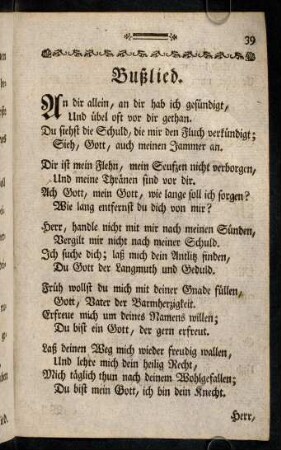 39
Bußlied.
An dir allein, an dir hab ich gesündigt,
Und übel oft vor dir gethan.
Du siehst die Schuld, die mir den Fluch verkündigt;
Sieh, Gott, auch meinen Jammer an.
Dir ist mein Flehn, mein Seufzen nicht verborgen,
Und meine Thränen sind vor dir.
Ach Gott, mein Gott, wie lange soll ich sorgen?
Wie lang entfernst du dich von mir?
Herr, handle nicht mit mir nach meinen Sünden,
Vergilt mir nicht nach meiner Schuld.
Ich suche dich; laß mich dein Antlitz finden,
Du Gott der Langmuth und Geduld.
Früh wollst du mich mit deiner Gnade füllen,
Gott, Vater der Barmherzigkeit.
Erfreue mich um deines Namens willen;
Du bist ein Gott, der gern erfreut.
Laß deinen Weg mich wieder freudig wallen,
Und lehre mich dein heilig Recht,
Mich täglich thun nach deinem Wohlgefallen;
Du bist mein Gott, ich bin dein Knecht.
Herr,